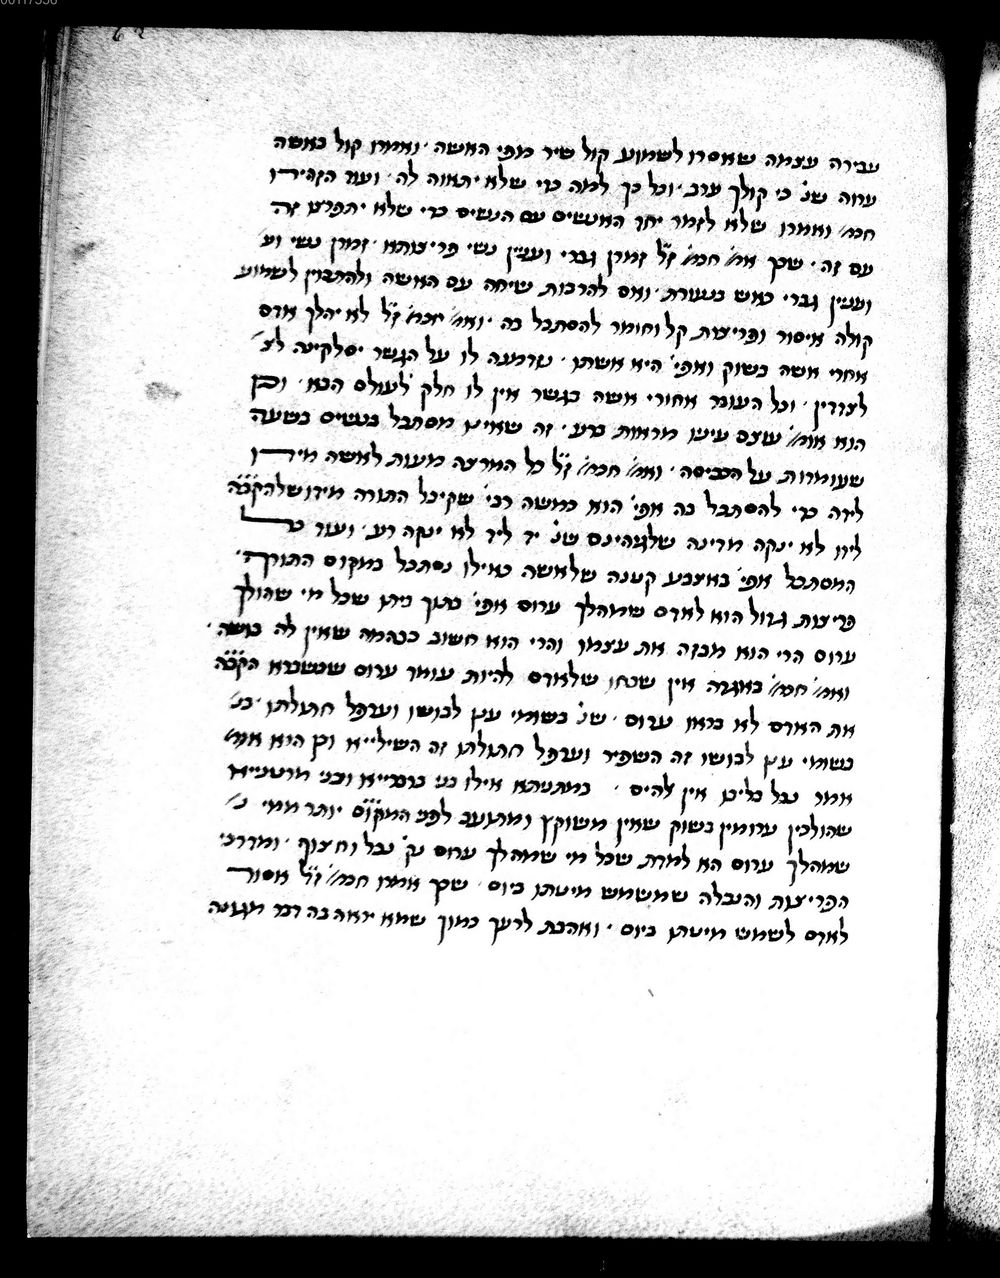 עבירה עצמה שאסרו לשמוע קול שיר מפי האשה · ואמרו קול באשה
ערוה שנ' כי קולך ערב · וכל כך למה כדי שלא יתאוה לה · ועוד הזהירו
חכמ' ואמרו שלא לזמר יחד האנשים עם הנשים כדי שלא יתפרצו זה
עם זה · שכך אמ' חכמ' ז"ל זמרן גברי ועניין נשי פריצותא · זמרן נשי וע'
ועניין גברי כאש בנעורת · ואם להרבות שיחה עם האשה ולהתכוין לשמוע
קולה איסור ופריצות קל וחומר להסתכל בה · ואמ' חכמ' ז"ל לא יהלך אדם
אחרי אשה בשוק ואפי' היא אשתו · נזדמנה לו על הגשר יסלקינה לצ'
לצדדין · וכל העובר אחורי אשה בגשר אין לו חלק לעולם הבא · וכן
הוא אומ' עוצם עיניו מראות ברע · זה שאינו מסתכל בנשים בשעה
שעומדות על הכביסה · ואמ' חכמ' ז"ל כל המרצה מעות לאשה מידו
לידה כדי להסתכל בה אפי' הוא כמשה רבי' שקיבל התורה מידו שלהקב"ה
לידו לא ינקה מדינה שלגיהינם שנ' יד ליד לא ינקה רע · ועוד כל
המסתכל אפי' באצבע קטנה שלאשה כאילו נסתכל במקום התורף ·
פריצות גדול הוא לאדם שמהלך ערום אפי' בתוך ביתו שכל מי שהולך
ערום הרי הוא מבזה את עצמו והרי הוא חשוב כבהמה שאין לה בושה ·
ואמ' חכמ' באגדה אין שבחו שלאדם להיות עומד ערום שכשברא הקב"ה
את האדם לא בראו ערום · שנ' בשומי ענן לבושו וערפל חתולתו · בנ'
בשומי ענן לבושו זה השפיר וערפל חתולתו זה השילייא וכן הוא אומ'
אמר נבל בליבו אין אלהים · במתניתא אילו בני ברברייא ובני מרטנייא
שהולכין ערומין בשוק שאין משוקץ ומתועב לפני המקום יותר ממי כ'
שמהלך ערום הא למדת שכל מי שמהלך ערום נק' נבל וחצוף · ומדרכי
הפריצות והנבלה שמשמש מיטתו ביום · שכך אמרו חכמ' ז"ל אסור
לאדם לשמש מיטתו ביום · ואהבת לרעך כמוך שמא יראה בה דבר מגונה